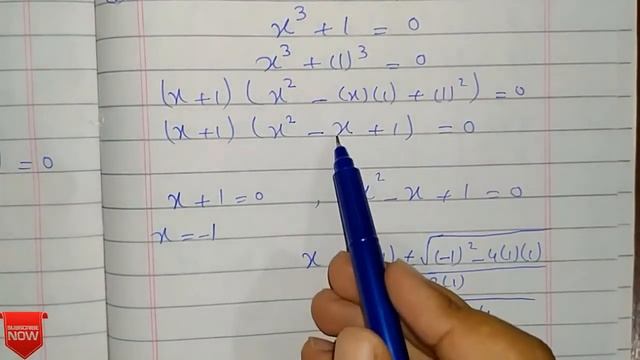 x³ + 1 = 0
x³ + (1)³ = 0
(x + 1) (x² - (x)(1) + (1)²) = 0
(x + 1) (x² - x + 1) = 0
= 0
x + 1 = 0 , x² - x + 1 = 0
x = -1
x + √(-1)² - 4(1)(1)
(1)
SUBSCRIBE
NOW